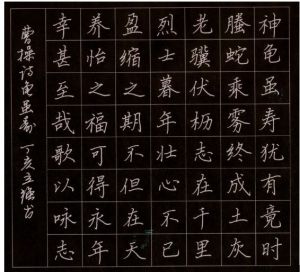 神龟虽寿犹有竟时
螣蛇乘雾终成土灰
老骥伏枥志在千里
烈士暮年壮心不已
盈缩之期不但在天
养怡之福可得永年
幸甚至哉歌以咏志
曹操诗龟虽寿 丁亥